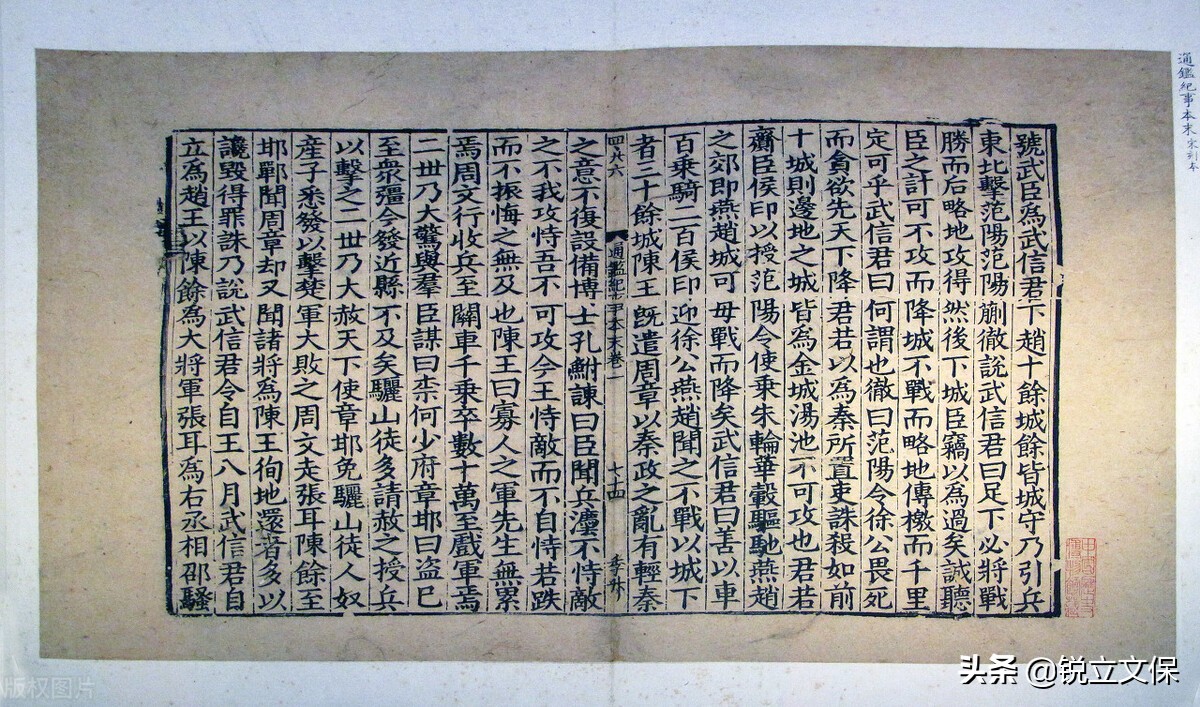 通鑑紀事本末 宋刻本
號武臣爲武信君下趙十餘城餘皆城守乃引兵
東北擊范陽范陽蒯徹說武信君曰足下必將戰
勝而后略地攻得然後下城臣竊以爲過矣誠聽
臣之計可不攻而降城不戰而略地傳檄而千里
定可乎武信君曰何謂也徹曰范陽令徐公畏死
而貪欲先天下降君若以爲秦所置吏誅殺如前
十城則邊地之城皆爲金城湯池不可攻也君若
齎臣侯印以授范陽令使乘朱輪華轂驅馳燕趙
之郊即燕趙城可毋戰而降矣武信君曰善以車
百乘騎二百侯印迎徐公燕趙聞之不戰以城下
者三十餘城陳王旣遣周章以秦政之亂有輕秦
通鑑紀事本末卷一 七十四
之意不復設備博士孔鮒諫曰臣聞兵灋不恃敵
之不我攻恃吾不可攻今王恃敵而不自恃若跌
而不振悔之無及也陳王曰寡人之軍先生無累
焉周文行收兵至關車千乘卒數十萬至戲軍焉
二世乃大驚與羣臣謀曰柰何少府章邯曰盗已
至衆彊今發近縣不及矣驪山徒多請赦之授兵
以擊之二世乃大赦天下使章邯免驪山徒人奴
産子悉發以擊楚軍大敗之周文走張耳陳餘至
邯鄲聞周章却又聞諸將爲陳王徇地還者多以
讒毀得罪誅乃說武信君令自王八月武信君自
立爲趙王以陳餘爲大將軍張耳爲右丞相邵騷
头条 @锐立文保
版权图片